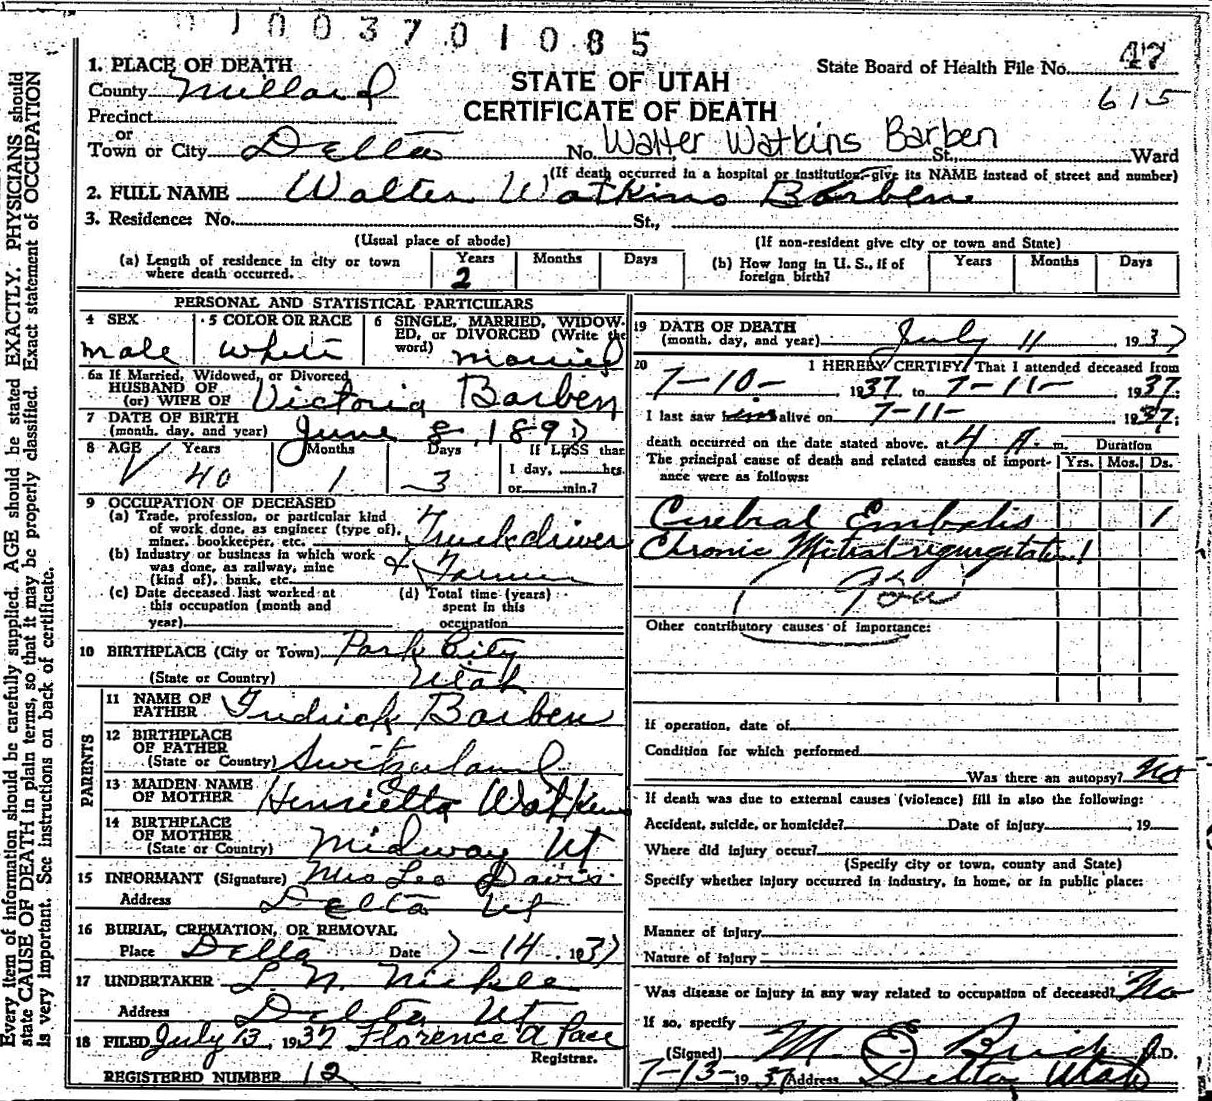 0 1 0 0 3 7 0 1 0 8 5
47
615
State Board of Health File No.
STATE OF UTAH
CERTIFICATE OF DEATH
1. PLACE OF DEATH
County Millard
Precinct
or
Town or City Delta No. Walter Watkins Barben St., Ward
(If death occurred in a hospital or institution, give its NAME instead of street and number)
2. FULL NAME Walter Watkins Barben
3. Residence: No. St.,
(Usual place of abode) (If non-resident give city or town and State)
(a) Length of residence in city or town where death occurred. Years 2 Months Days
(b) How long in U. S., if of foreign birth? Years Months Days
PERSONAL AND STATISTICAL PARTICULARS
4 SEX male
5 COLOR OR RACE White
6 SINGLE, MARRIED, WIDOWED, or DIVORCED (Write the word) married
6a If Married, Widowed, or Divorced
HUSBAND OF
(or) WIFE OF Victoria Barben
7 DATE OF BIRTH
(month, day, and year) June 8, 1897
8 AGE Years 40 Months 1 Days 3 If LESS than
1 day, hrs.
or min.?
9 OCCUPATION OF DECEASED
(a) Trade, profession, or particular kind
of work done, as engineer (type of),
miner, bookkeeper, etc. Truckdriver
(b) Industry or business in which work
was done, as railway, mine
(kind of), bank, etc. & Farmer
(c) Date deceased last worked at
this occupation (month and
year)
(d) Total time (years)
spent in this
occupation
10 BIRTHPLACE (City or Town) Park City
(State or Country) Utah
PARENTS
11 NAME OF
FATHER Fredrick Barben
12 BIRTHPLACE
OF FATHER
(State or Country) Switzerland
13 MAIDEN NAME
OF MOTHER Henrietta Watkins
14 BIRTHPLACE
OF MOTHER
(State or Country) Midway Ut
15 INFORMANT (Signature) Mrs Leo Davis
Address Delta Ut
16 BURIAL, CREMATION, OR REMOVAL
Place Delta Date 7-14 1937
17 UNDERTAKER L. N. Nickle
Address Delta Ut
18 FILED July 13, 1937 Florence A Pace
Registrar.
REGISTERED NUMBER 12
19 DATE OF DEATH
(month, day, and year) July 11 1937
20 I HEREBY CERTIFY, That I attended deceased from
7-10- 1937, to 7-11- 1937.
I last saw him alive on 7-11- 1937;
death occurred on the date stated above, at 4 A. m. Duration
The principal cause of death and related causes of importance were as follows: Yrs. Mos. Ds.
Cerebral Embolis 1
Chronic Mitral regurgitation
Other contributory causes of importance:
If operation, date of
Condition for which performed
Was there an autopsy? No
If death was due to external causes (violence) fill in also the following:
Accident, suicide, or homicide? Date of injury , 19
Where did injury occur?
(Specify city or town, county and State)
Specify whether injury occurred in industry, in home, or in public place:
Manner of injury
Nature of injury
Was disease or injury in any way related to occupation of deceased? No
If so, specify
(Signed) M E Bird M.D.
7-13-1937 Address Delta, Utah
Every item of information should be carefully supplied. AGE should be stated EXACTLY. PHYSICIANS should
state CAUSE OF DEATH in plain terms, so that it may be properly classified. Exact statement of OCCUPATION
is very important. See instructions on back of certificate.